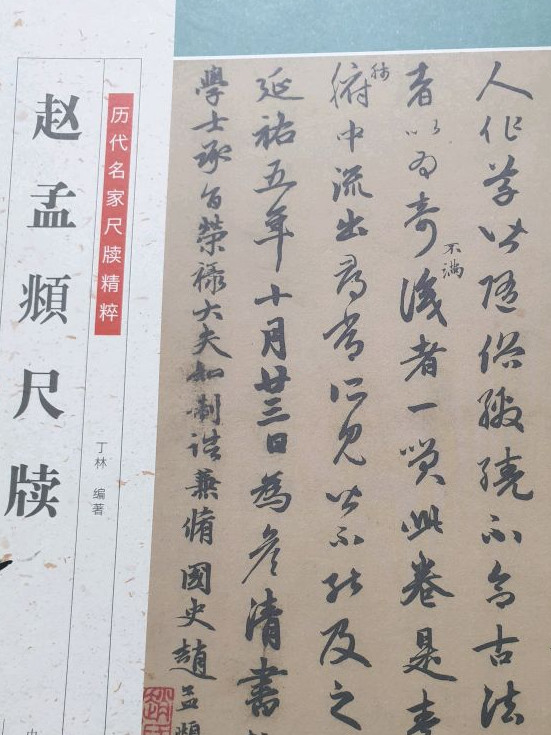 赵孟頫尺牍
历代名家尺牍精粹
丁林 编著
人作草皆隨俗繳繞不合古法
者以為奇不滿識者一笑此卷是素
肺腑中流出尋常所見皆不能及之
延祐五年十月廿三日為彥清書
學士承旨榮祿大夫知制誥兼脩國史趙孟頫